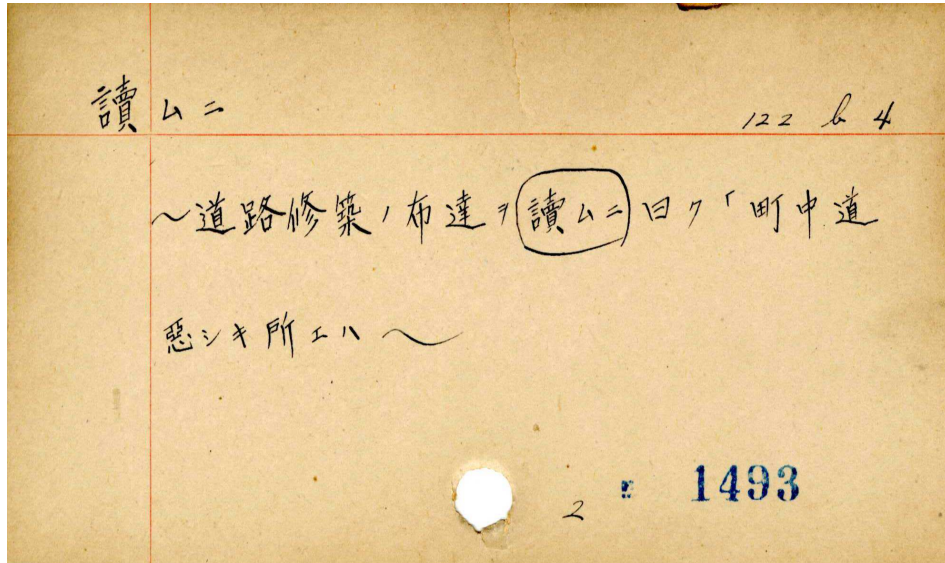 讀ムニ 122 b 4
〜道路修築ノ布達ヲ讀ムニ曰ク「町中道
惡シキ所エハ〜
2 1493